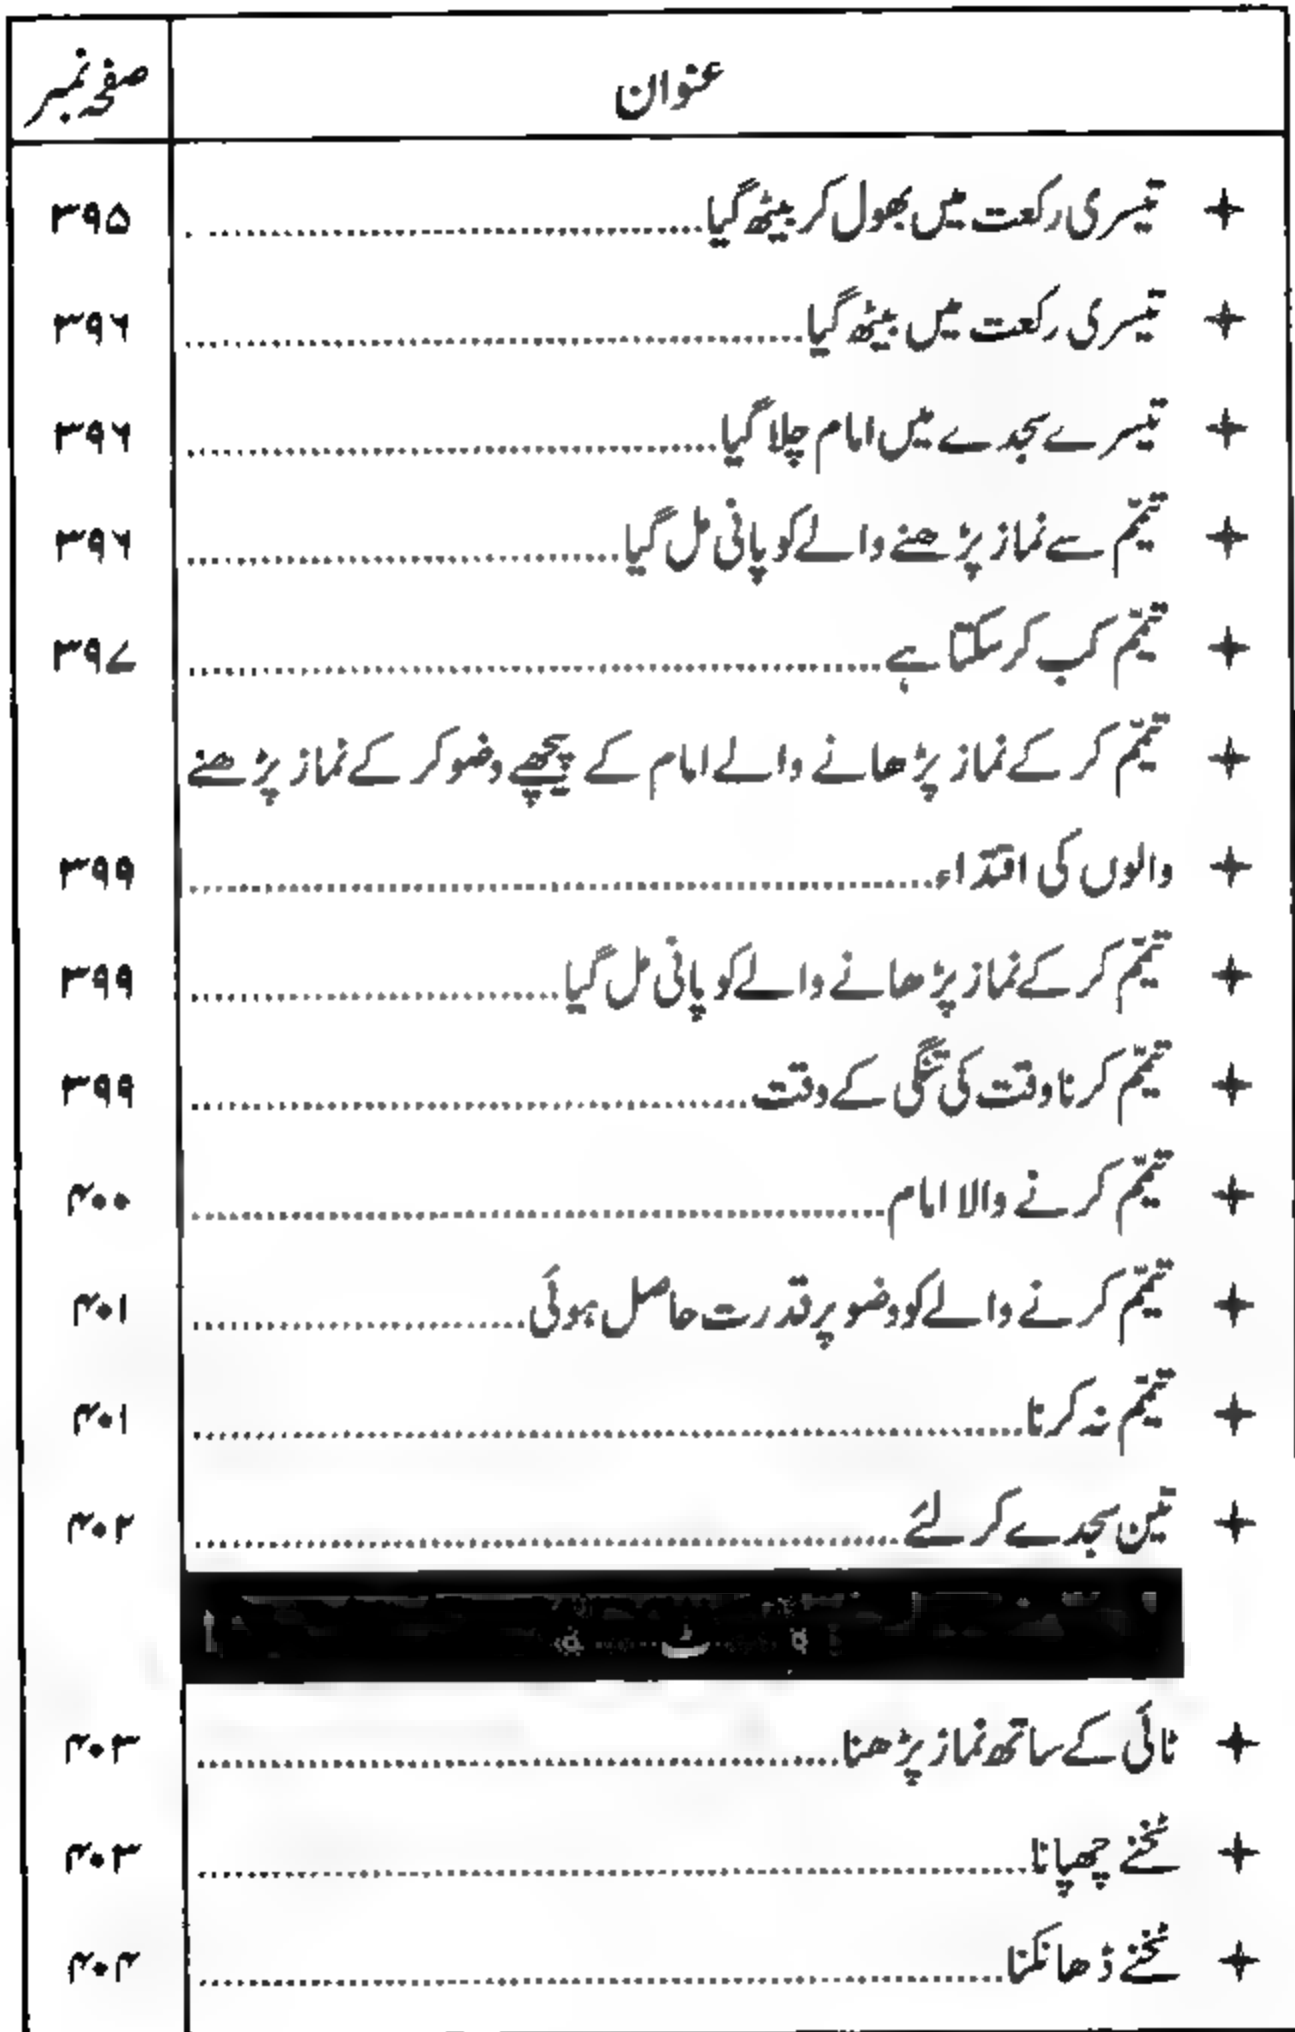 عنوان صفحہ نمبر
✦ تیسری رکعت میں بھول کر بیٹھ گیا ۳۹۵
✦ تیسری رکعت میں بیٹھ گیا ۳۹۶
✦ تیسرے سجدے میں امام چلا گیا ۳۹۶
✦ تیمّم سے نماز پڑھنے والے کو پانی مل گیا ۳۹۶
✦ تیمّم کب کر سکتا ہے ۳۹۷
✦ تیمّم کر کے نماز پڑھانے والے امام کے پیچھے وضو کر کے نماز پڑھنے
✦ والوں کی اقتداء ۳۹۹
✦ تیمّم کر کے نماز پڑھانے والے کو پانی مل گیا ۳۹۹
✦ تیمّم کرنا وقت کی تنگی کے وقت ۳۹۹
✦ تیمّم کرنے والا امام ۴۰۰
✦ تیمّم کرنے والے کو وضو پر قدرت حاصل ہوئی ۴۰۱
✦ تیمّم نہ کرنا ۴۰۱
✦ تین سجدے کر لئے ۴۰۲
✦ ٹائی کے ساتھ نماز پڑھنا ۴۰۳
✦ ٹخنے چھپانا ۴۰۳
✦ ٹخنے ڈھانکنا ۴۰۴